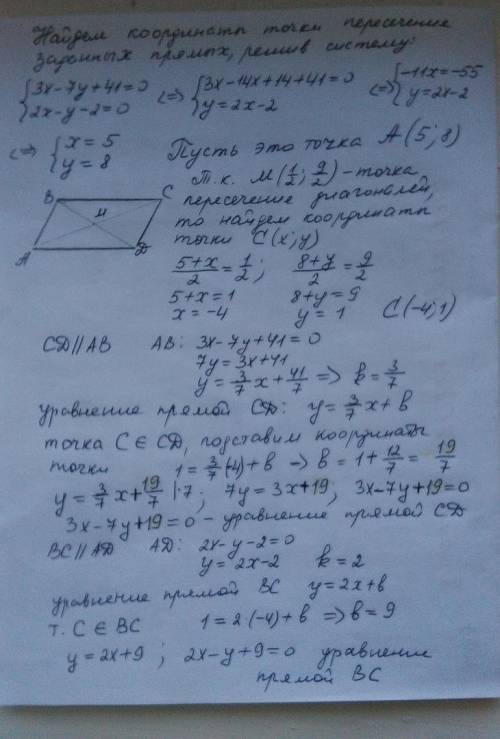 Найдем координаты точки пересечение
заданных прямых, решив систему:
{3x-7y+41=0 {2x-y-2=0 (=) {3x-14x+14+41=0 {y=2x-2 (=) {-11x=-55 {y=2x-2
(=) {x=5 {y=8 Пусть это точка A(5; 8)
Т.к. M(1/2; 9/2) - точка
пересечение диагоналей,
то найдем координаты
точки C(x; y)
B C M A D
(5+x)/2 = 1/2; (8+y)/2 = 9/2
5+x=1 8+y=9
x=-4 y=1 C(-4; 1)
CD//AB AB: 3x-7y+41=0
7y=3x+41
y=3/7 x+41/7 => k=3/7
уравнение прямой CD: y=3/7 x+b
точка C∈CD, подставим координаты
точки 1=3/7·(-4)+b => b=1+12/7=19/7
y=3/7 x+19/7 |·7; 7y=3x+19; 3x-7y+19=0
3x-7y+19=0 - уравнение прямой CD
BC//AD AD: 2x-y-2=0
y=2x-2 k=2
уравнение прямой BC y=2x+b
т. C∈BC 1=2·(-4)+b => b=9
y=2x+9; 2x-y+9=0 уравнение
прямой BC